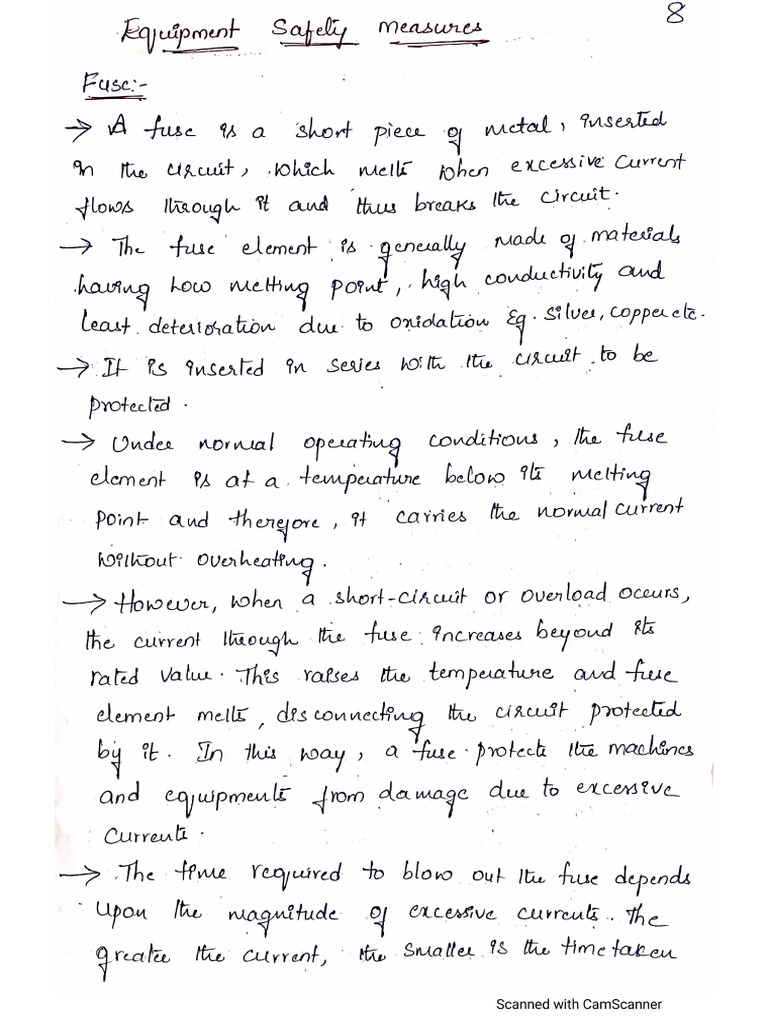 8
Equipment Safety Measures
Fuse:-
→ A fuse is a short piece of metal, inserted
in the circuit, which melts when excessive current
flows through it and thus breaks the circuit.
→ The fuse element is generally made of materials
having low melting point, high conductivity and
least deterioration due to oxidation Eg. Silver, copper etc.
→ It is inserted in series with the circuit to be
protected.
→ Under normal operating conditions, the fuse
element is at a temperature below its melting
point and therefore, it carries the normal current
without overheating.
→ However, when a short-circuit or overload occurs,
the current through the fuse increases beyond its
rated value. This raises the temperature and fuse
element melts, disconnecting the circuit protected
by it. In this way, a fuse protects the machines
and equipments from damage due to excessive
currents.
→ The time required to blow out the fuse depends
upon the magnitude of excessive currents. The
greater the current, the smaller is the time taken
Scanned with CamScanner